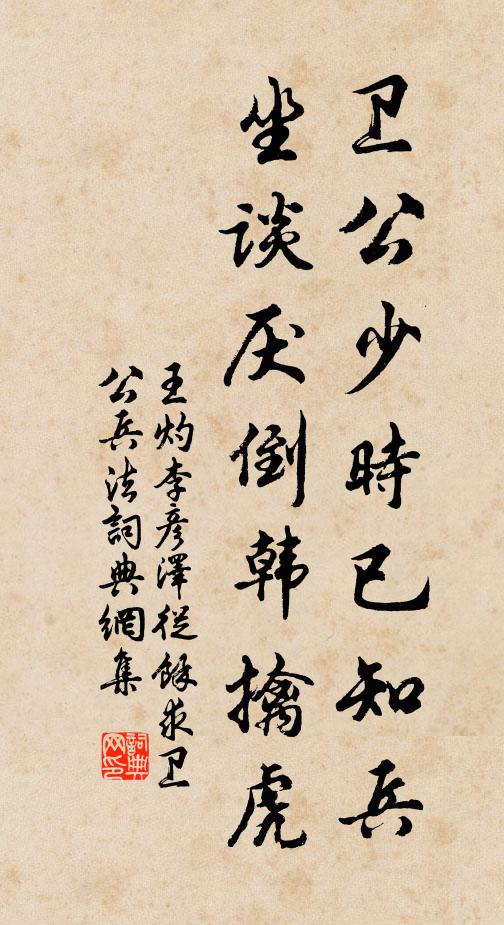 卫公少時已知兵
坐谈厌倒韩擒虎
王灼李彦澤從餘求卫
公兵法詞典網集
詞典網印